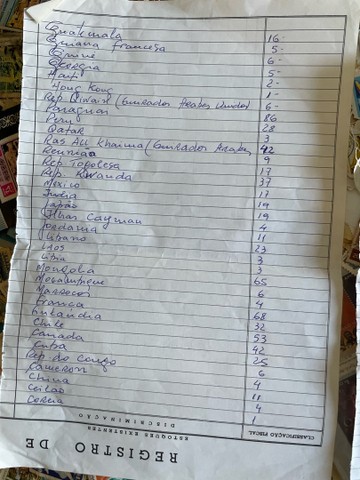 Guatemala 16-
Guiana Francesa 5-
Guine 6-
Georgia 5-
Haiti 2-
Hong Kong 1-
Rep. (Emirados Arabes Unidos) 6-
Paraguai 86
Peru 28
Qatar 3
Ras Al Khaima (Emirados Arabes 42
Reuniao 9
Rep Togolesa 17
Rep. Rwanda 37
Mexico 17
India 19
Japão 19
Ilhas Cayman 4
Jordania 11
Libano 23
Laos 3
Libia 3
Mongolia 65
Mocambique 6
Marrocos 4
França 68
Finlandia 32
Chile 53
Canada 42
Cuba 25
Rep do Congo 6
Cameron 4
China 11
Ceilão 4
Coreia 1
CLASSIFICAÇÃO FISCAL
ESTOQUES EXISTENTES
DISCRIMINAÇÃO
REGISTRO DE